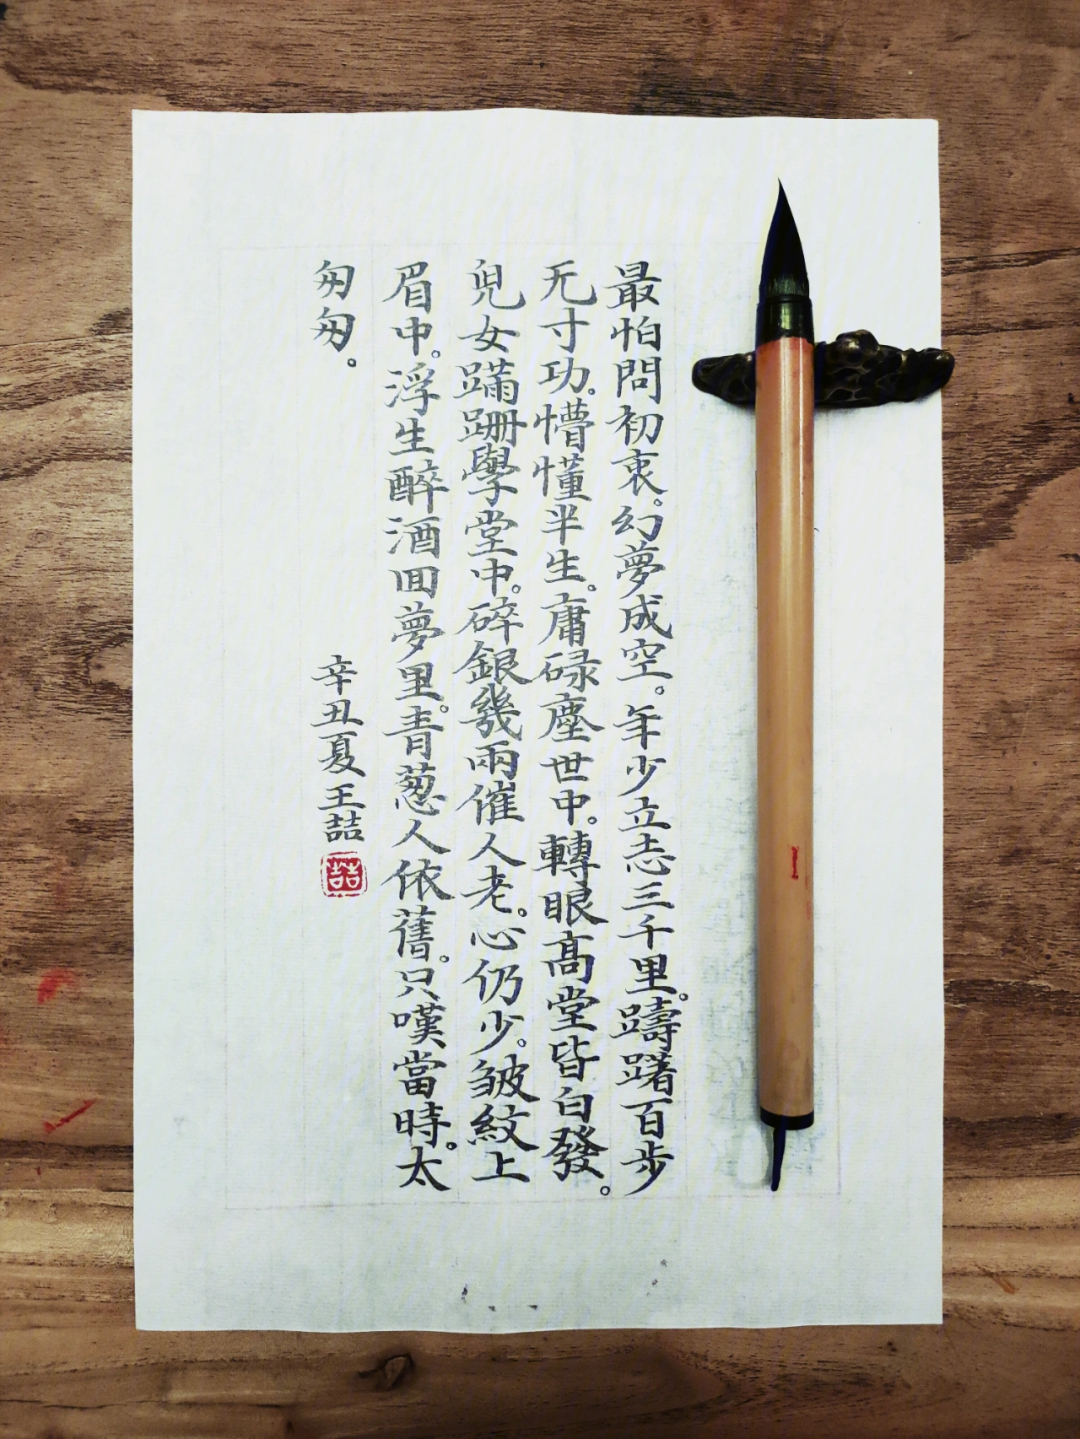 最怕問初衷。幻夢成空。年少立志三千里。躊躇百步
无寸功。懵懂半生。庸碌塵世中。轉眼高堂皆白發。
兒女蹣跚學堂中。碎銀幾兩催人老。心仍少。皱紋上
眉中。浮生醉酒回夢里。青葱人依舊。只嘆當時。太
匆匆。
辛丑夏王喆
喆